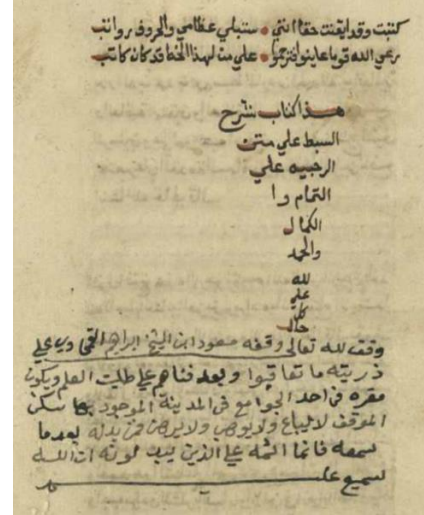 كتبت وقد ايقنت حقا انني • ستبلي عظامي والحروف رواتب
رعي الله قوما عاينوا فترحموا • علي من لهذا الخط قد كان كاتب
هذا كتاب شرح
السبط علي متن
الرحبيه علي
التمام وا
الكمال
والحمد
لله
علي
كل
حال
وقف لله تعالى وقفه مسعود ابن الشيخ ابراهيم علي
ذريته ما تعاقبوا وبعد فناهم علي طلبت العلم ويكون
مقره في احد الجوامع في المدينة الموجود بها سكن
الموقف لا يباع ولا يوهب ولا يرهن فمن بدله بعدما
سمعه فانما اثمه علي الذين يبدلونه ان الله
لسميع عليم